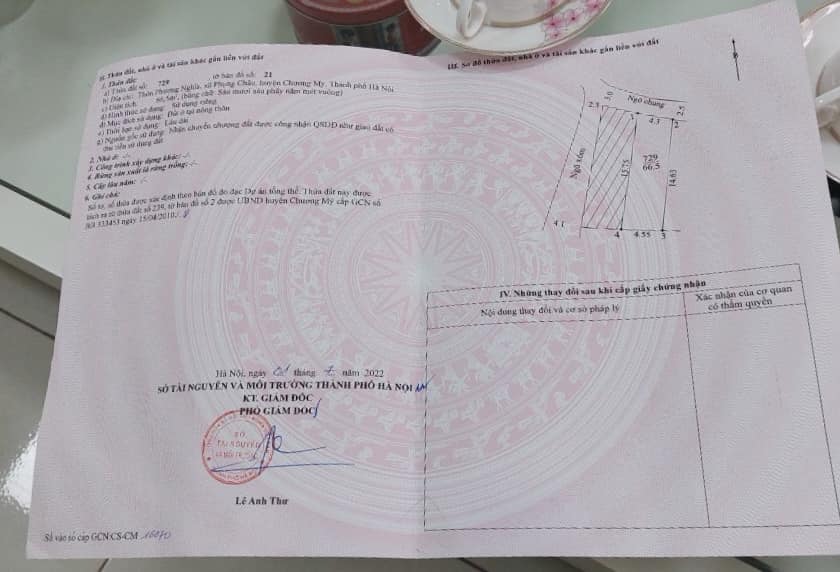 II. Thửa đất, nhà ở và tài sản khác gắn liền với đất
1. Thửa đất:
a) Thửa đất số: 729 tờ bản đồ số: 21
b) Địa chỉ: Thôn Phương Nghĩa, xã Phụng Châu, huyện Chương Mỹ, Thành phố Hà Nội
c) Diện tích: 66,5m², (bằng chữ: Sáu mươi sáu phẩy năm mét vuông)
d) Hình thức sử dụng: Sử dụng riêng
đ) Mục đích sử dụng: Đất ở tại nông thôn
e) Thời hạn sử dụng: Lâu dài
g) Nguồn gốc sử dụng: Nhận chuyển nhượng đất được công nhận QSDĐ như giao đất có
thu tiền sử dụng đất
2. Nhà ở: -/-
3. Công trình xây dựng khác: -/-
4. Rừng sản xuất là rừng trồng: -/-
5. Cây lâu năm: -/-
6. Ghi chú:
Số tờ, số thửa được xác định theo bản đồ đo đạc Dự án tổng thể. Thửa đất này được
tách ra từ thửa đất số 239, tờ bản đồ số 2 được UBND huyện Chương Mỹ cấp GCN số
333453 ngày 15/04/2010
III. Sơ đồ thửa đất, nhà ở và tài sản khác gắn liền với đất
Ngõ chung
2.3
3.0
4.3
2
2.5
Ngõ xóm
15.75
729
66.5
14.63
4.1
4
4.55
3
IV. Những thay đổi sau khi cấp giấy chứng nhận
Nội dung thay đổi và cơ sở pháp lý
Xác nhận của cơ quan
có thẩm quyền
Hà Nội, ngày tháng năm 2022
SỞ TÀI NGUYÊN VÀ MÔI TRƯỜNG THÀNH PHỐ HÀ NỘI
KT. GIÁM ĐỐC
PHÓ GIÁM ĐỐC
SỞ
TÀI NGUYÊN
Lê Anh Thư
Số vào sổ cấp GCN:CS-CM 16070